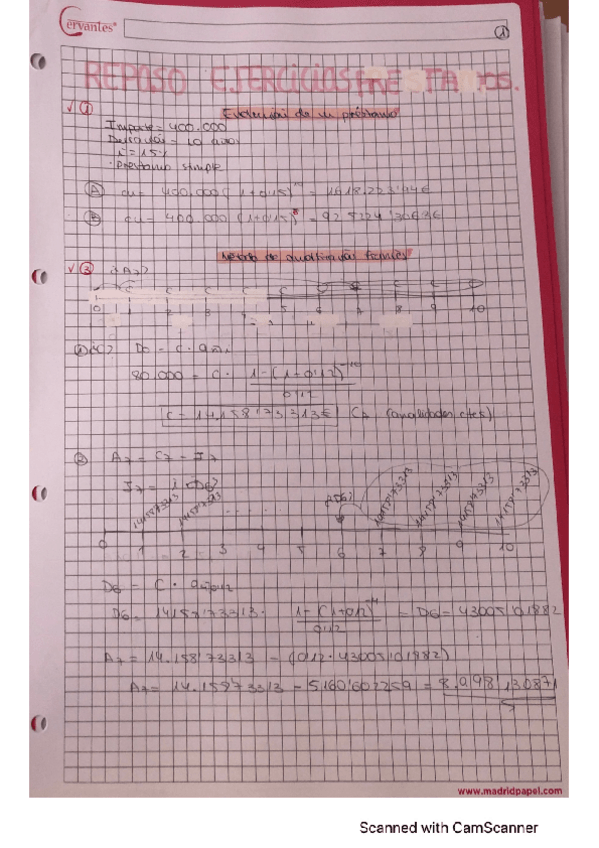 Cervantes
1
REPASO EJERCICIOS PRESTAMOS.
√ 1 Evolución de un préstamo
Importe = 400.000
Duración = 10 años
i = 15%
· Préstamo simple
A cu = 400.000 (1+0,15) = 1618.223'94€
B cu = 400.000 (1+0,15)
Método de amortización francés
√ 3 ¿A7?
C C C C C C C
0 1 2 3 4 5 6 7 8 9 10
1 ¿C? D0 = C ·
80.000 = C · 1-(1+0,12)^-10
0,12
C = 14.158'733313€ C7 (anualidades ctes)
2 A7 = C7 - I7
I7 = i · D6
14158'733313 14158'733313 ........ ¿D6? 14158'733313 14158'733313 14158'733313 14158'733313
0 1 2 3 4 5 6 7 8 9 10
D6 = C ·
D6 = 14158'733313 · 1-(1+0,12)^-4 = D6 = 43005'01882
0,12
A7 = 14.158'733313 - (0,12 · 43005'01882)
A7 = 14.158'73313 - 5160'602259 = 8.998'130871
www.madridpapel.com
Scanned with CamScanner